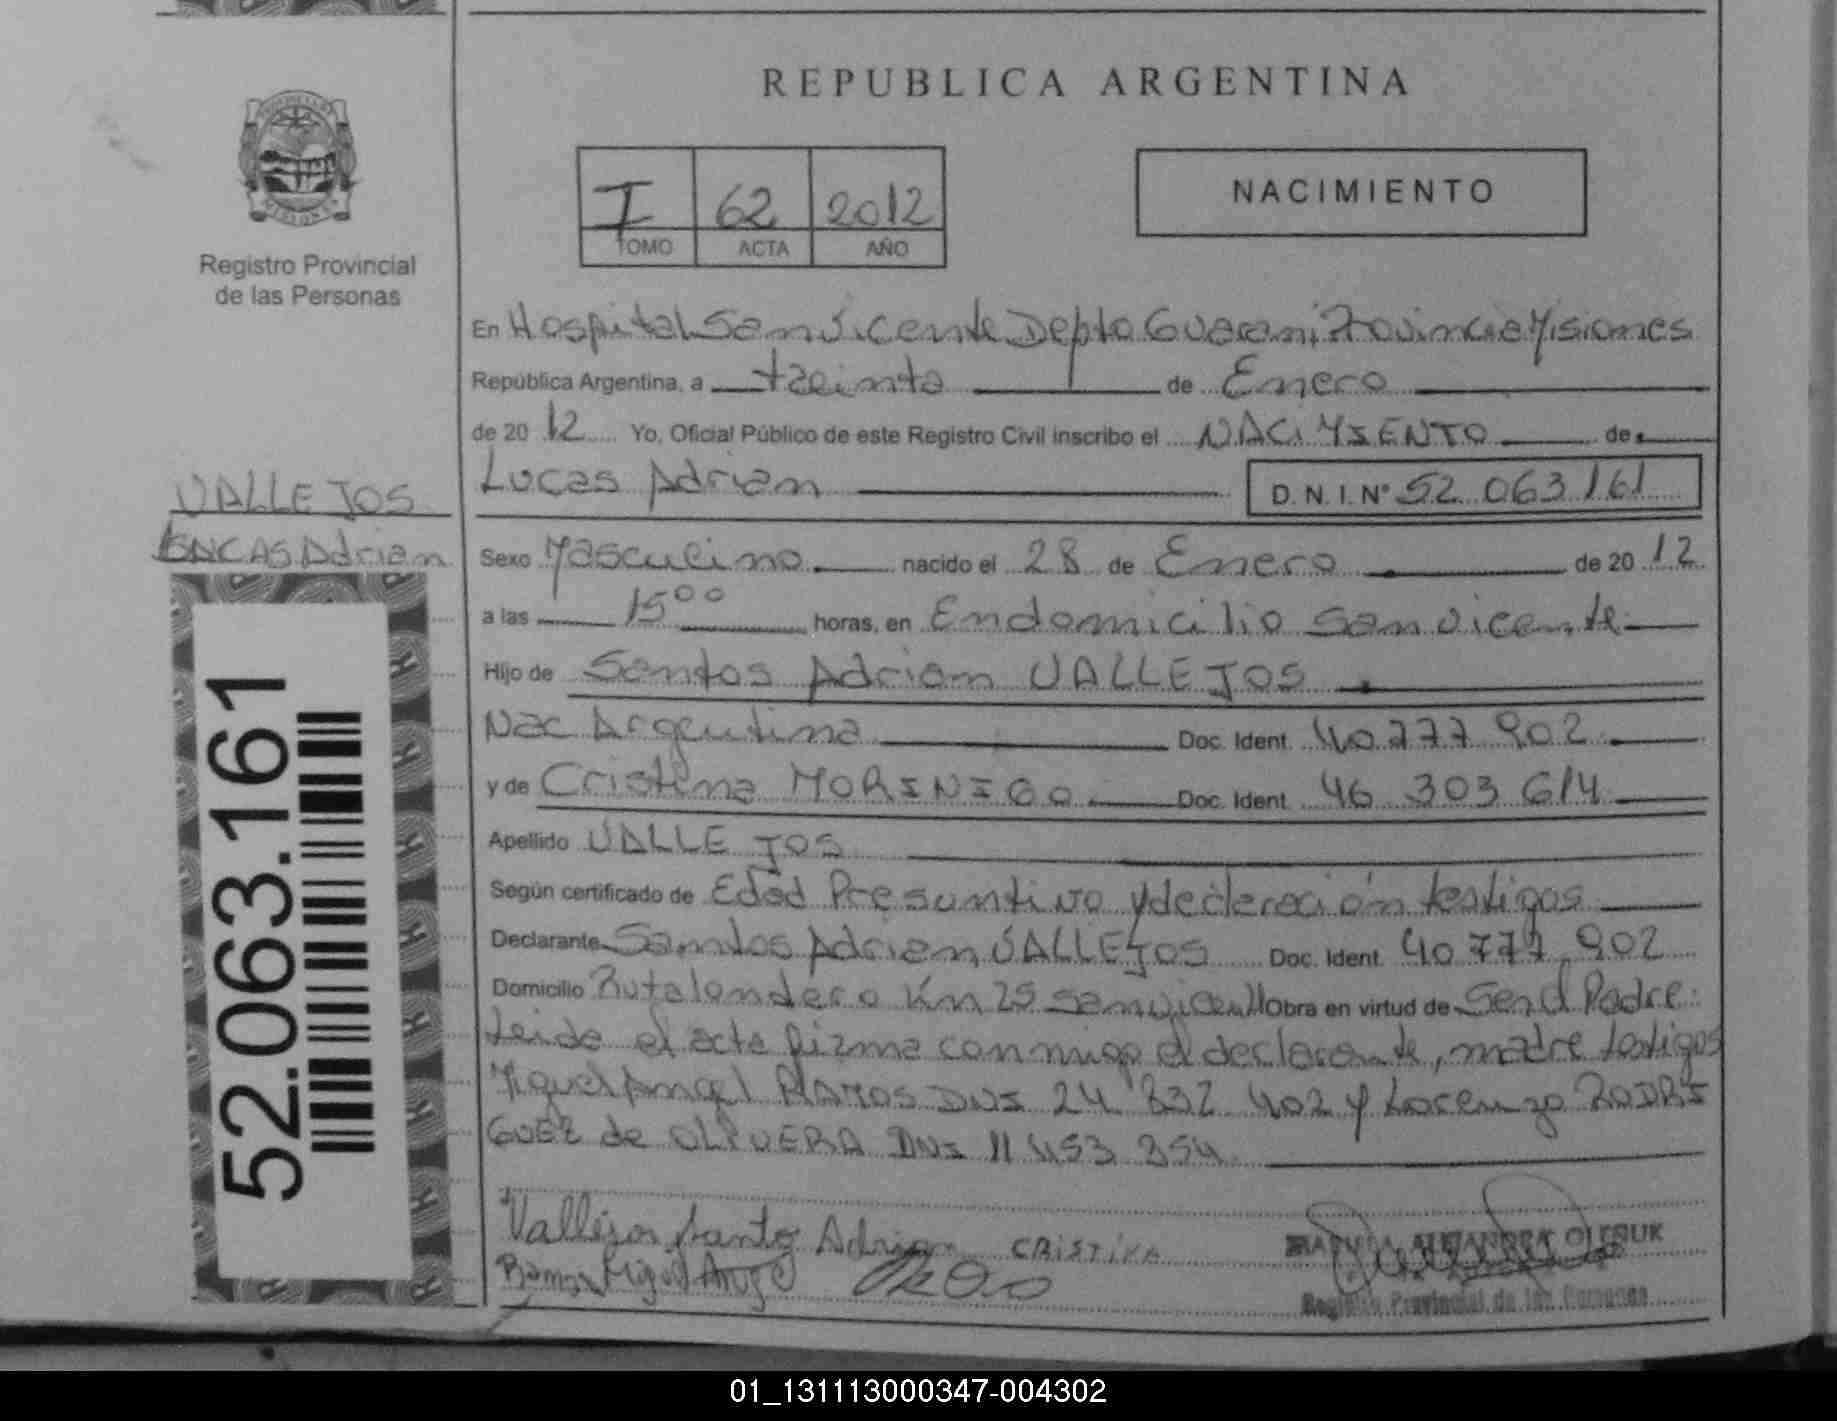 REPUBLICA ARGENTINA
I 62 2012
TOMO ACTA AÑO
NACIMIENTO
MISIONES
Registro Provincial
de las Personas
En Hospital San Vicente Depto Guarani Provincia Misiones
República Argentina, a treinta de Enero
de 2012 Yo, Oficial Público de este Registro Civil inscribo el NACIMIENTO de
Lucas Adrian D.N.I.Nº 52 063 161
VALLEJOS
LUCAS Adrian
Sexo Masculino nacido el 28 de Enero de 2012
a las 15 00 horas, en En domicilio San Vicente
Hijo de Santos Adrian VALLEJOS
Nac Argentina Doc. Ident. 40 777 902
y de Cristina MORINIGO Doc. Ident. 46 303 614
Apellido VALLEJOS
Según certificado de Edad Presuntivo y declaración testigos
Declarante Santos Adrian VALLEJOS Doc. Ident. 40 777 902
Domicilio Ruta Km 25 San Vicente Obra en virtud de Ser el Padre
Leida el acta firma conmigo el declarante, madre testigos
Miguel Angel RAMOS DNI 24 832 402 y Lorenzo RODRI
GUEZ de OLIVERA DNI 11 453 354
52.063.161
Vallejos Santo Adrian CRISTINA
Ramos Miguel Angel
ALEJANDRA
Registro Provincial de las Personas
01_131113000347-004302